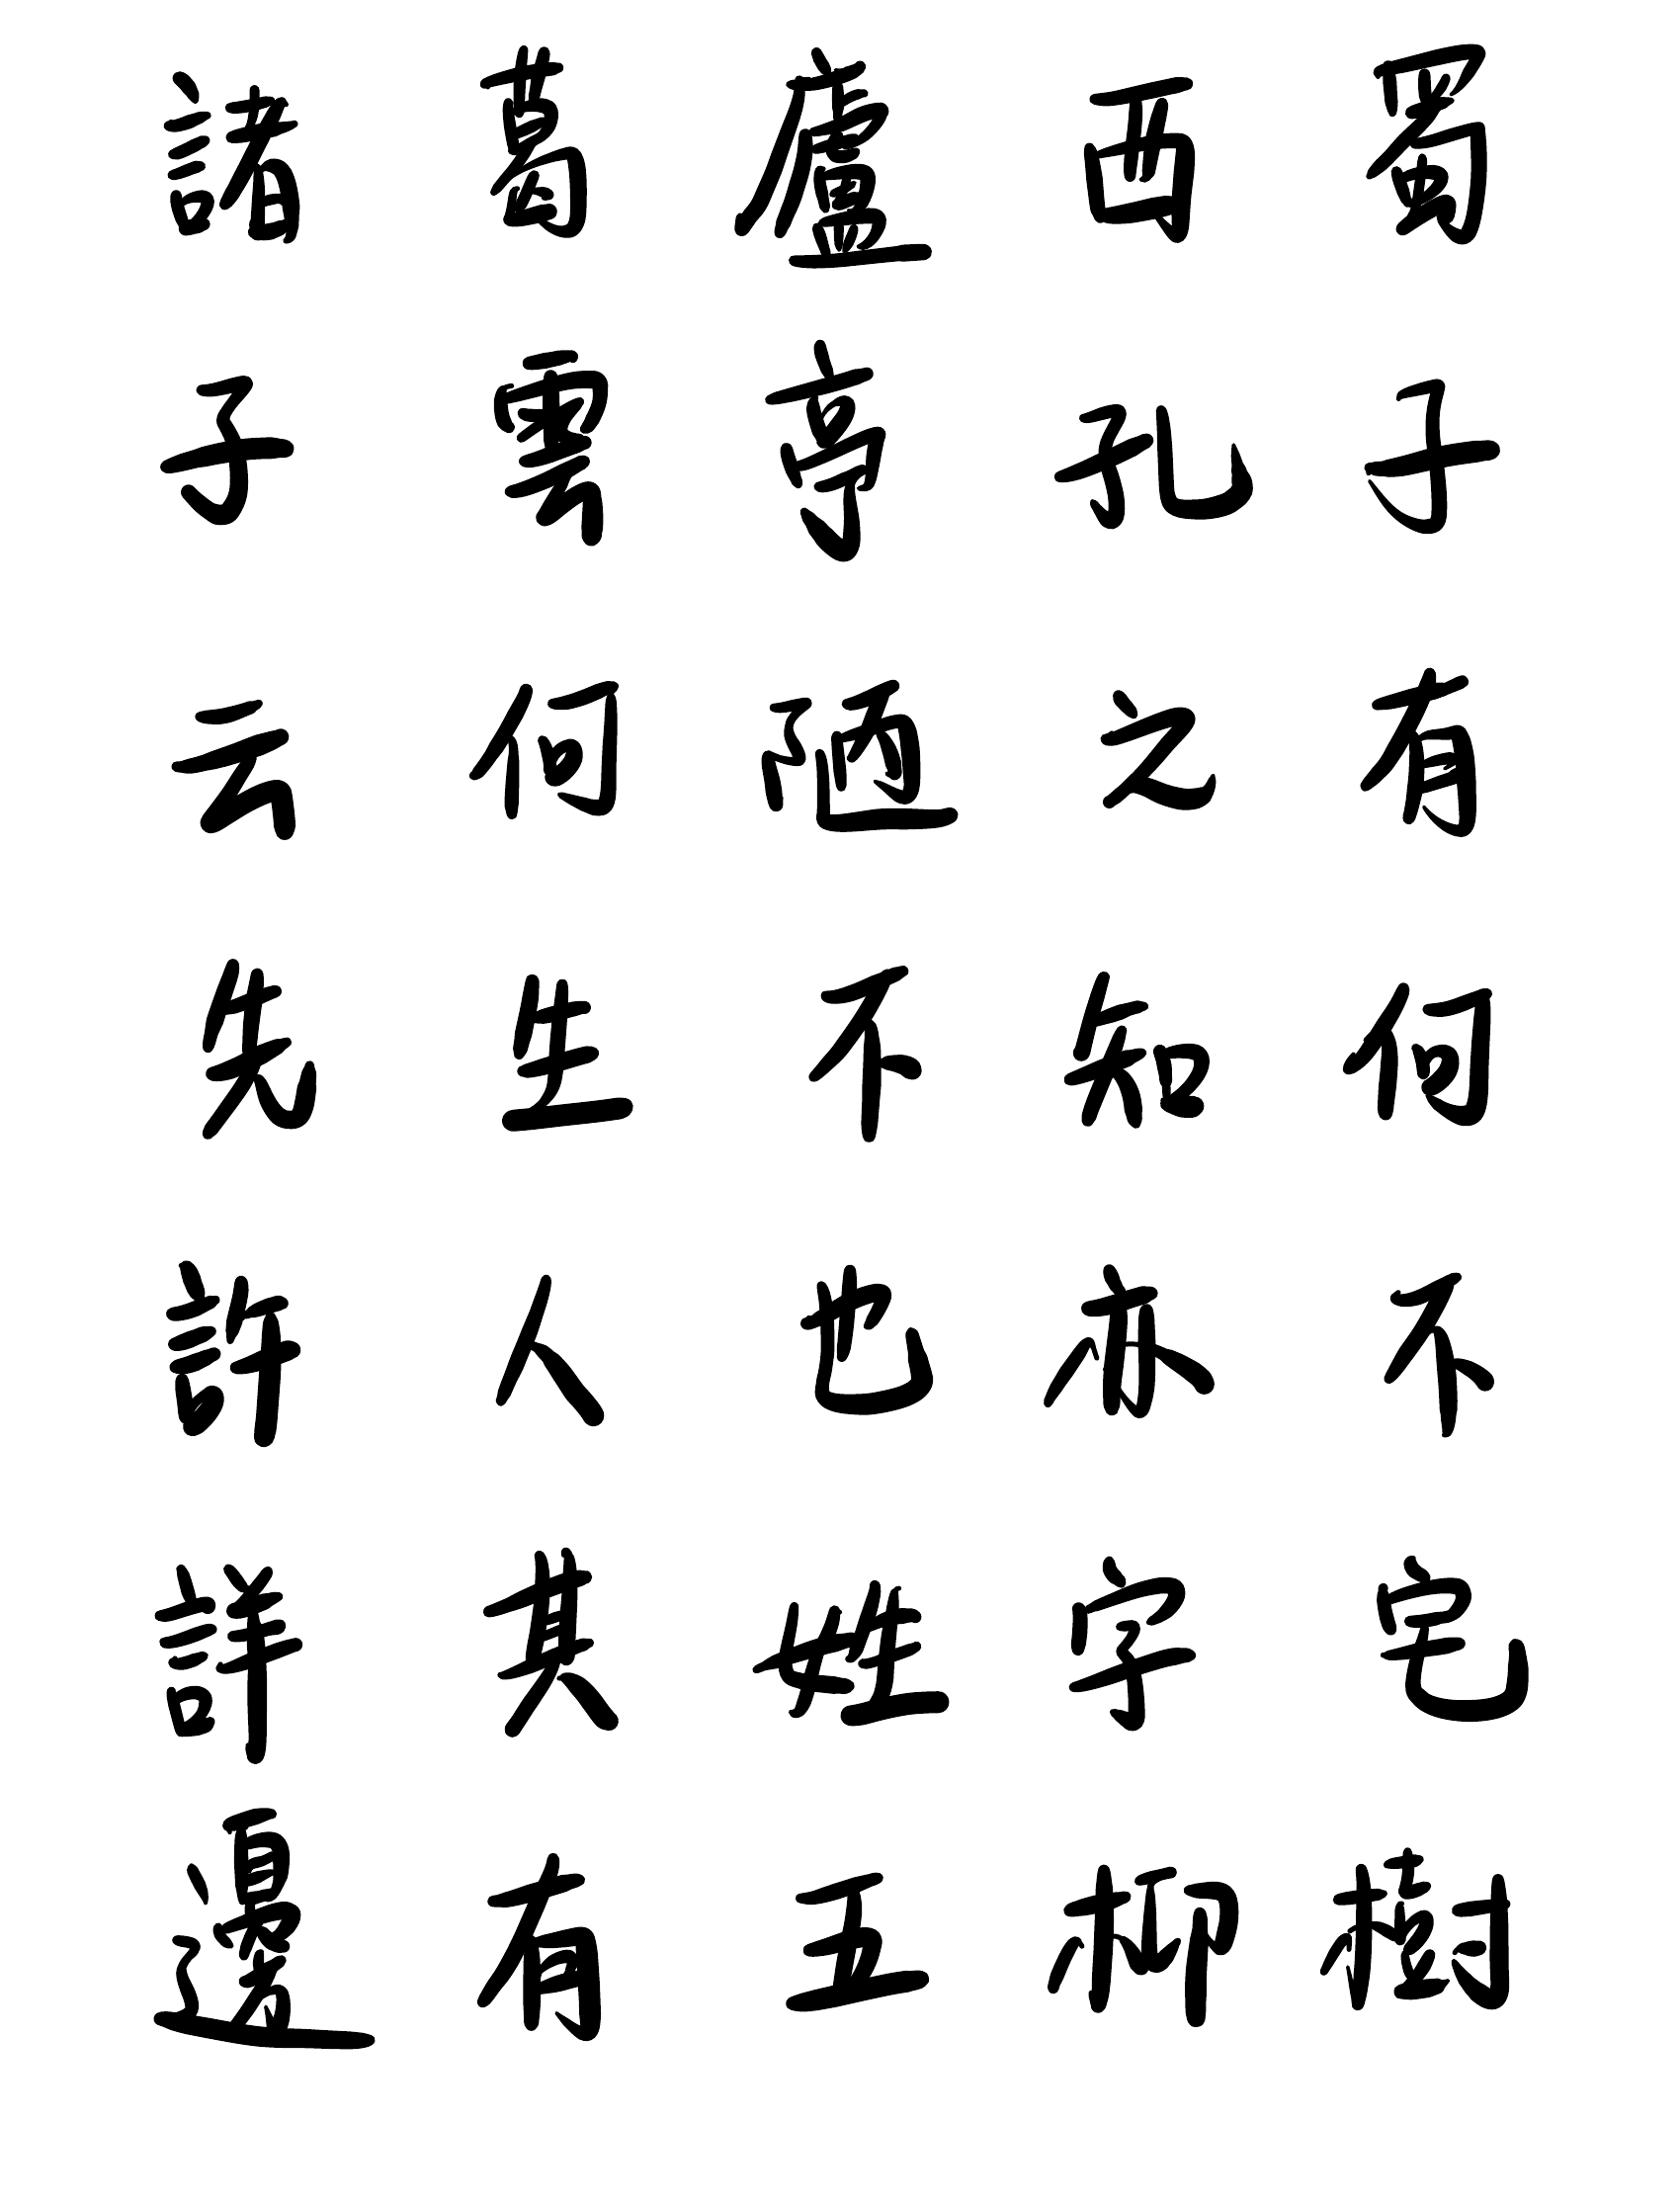 諸葛廬西蜀
子雲亭孔子
云何陋之有
先生不知何
許人也亦不
詳其姓字宅
邊有五柳樹